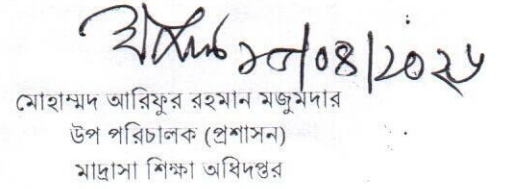 মোহাম্মদ আরিফুর রহমান মজুমদার
উপ পরিচালক (প্রশাসন)
মাদ্রাসা শিক্ষা অধিদপ্তর